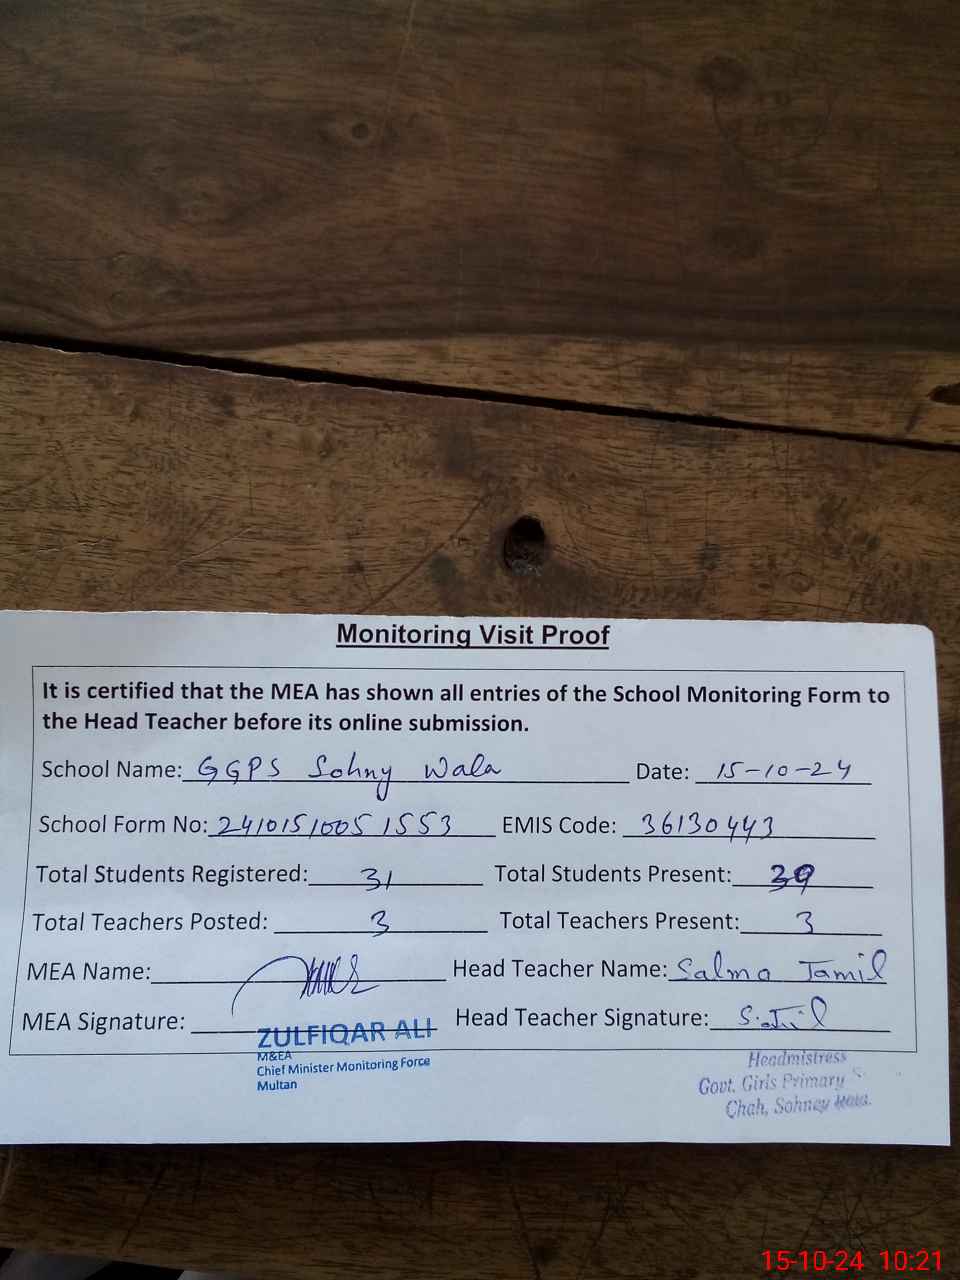 Monitoring Visit Proof
It is certified that the MEA has shown all entries of the School Monitoring Form to
the Head Teacher before its online submission.
School Name: GGPS Sohny Wala Date: 15-10-24
School Form No: 2410151005 1553 EMIS Code: 36130443
Total Students Registered: 31 Total Students Present:
Total Teachers Posted: 3 Total Teachers Present: 3
MEA Name: Head Teacher Name: Salma Jamil
MEA Signature: Head Teacher Signature:
ZULFIQAR ALI
M&EA
Chief Minister Monitoring Force
Multan
Headmistress
Govt. Girls Primary S
Chah, Sohney Wala.
15-10-24 10:21